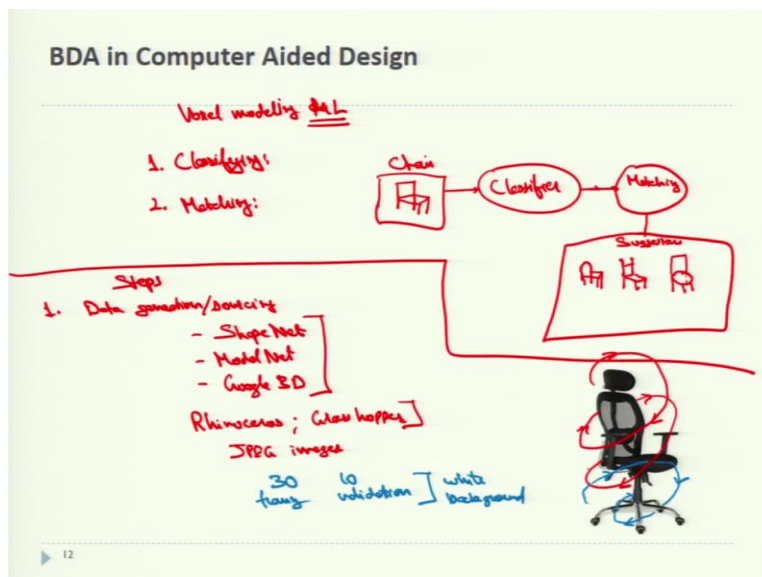 BDA in Computer Aided Design
Voxel modeling ML
1. Classifying:
2. Matching:
Chair
Classifier
Matching
Steps
1. Data generation/sourcing
- ShapeNet
- ModelNet
- Google 3D
Rhinoceros ; Grasshopper
JPEG images
30 10 white
validation background
12